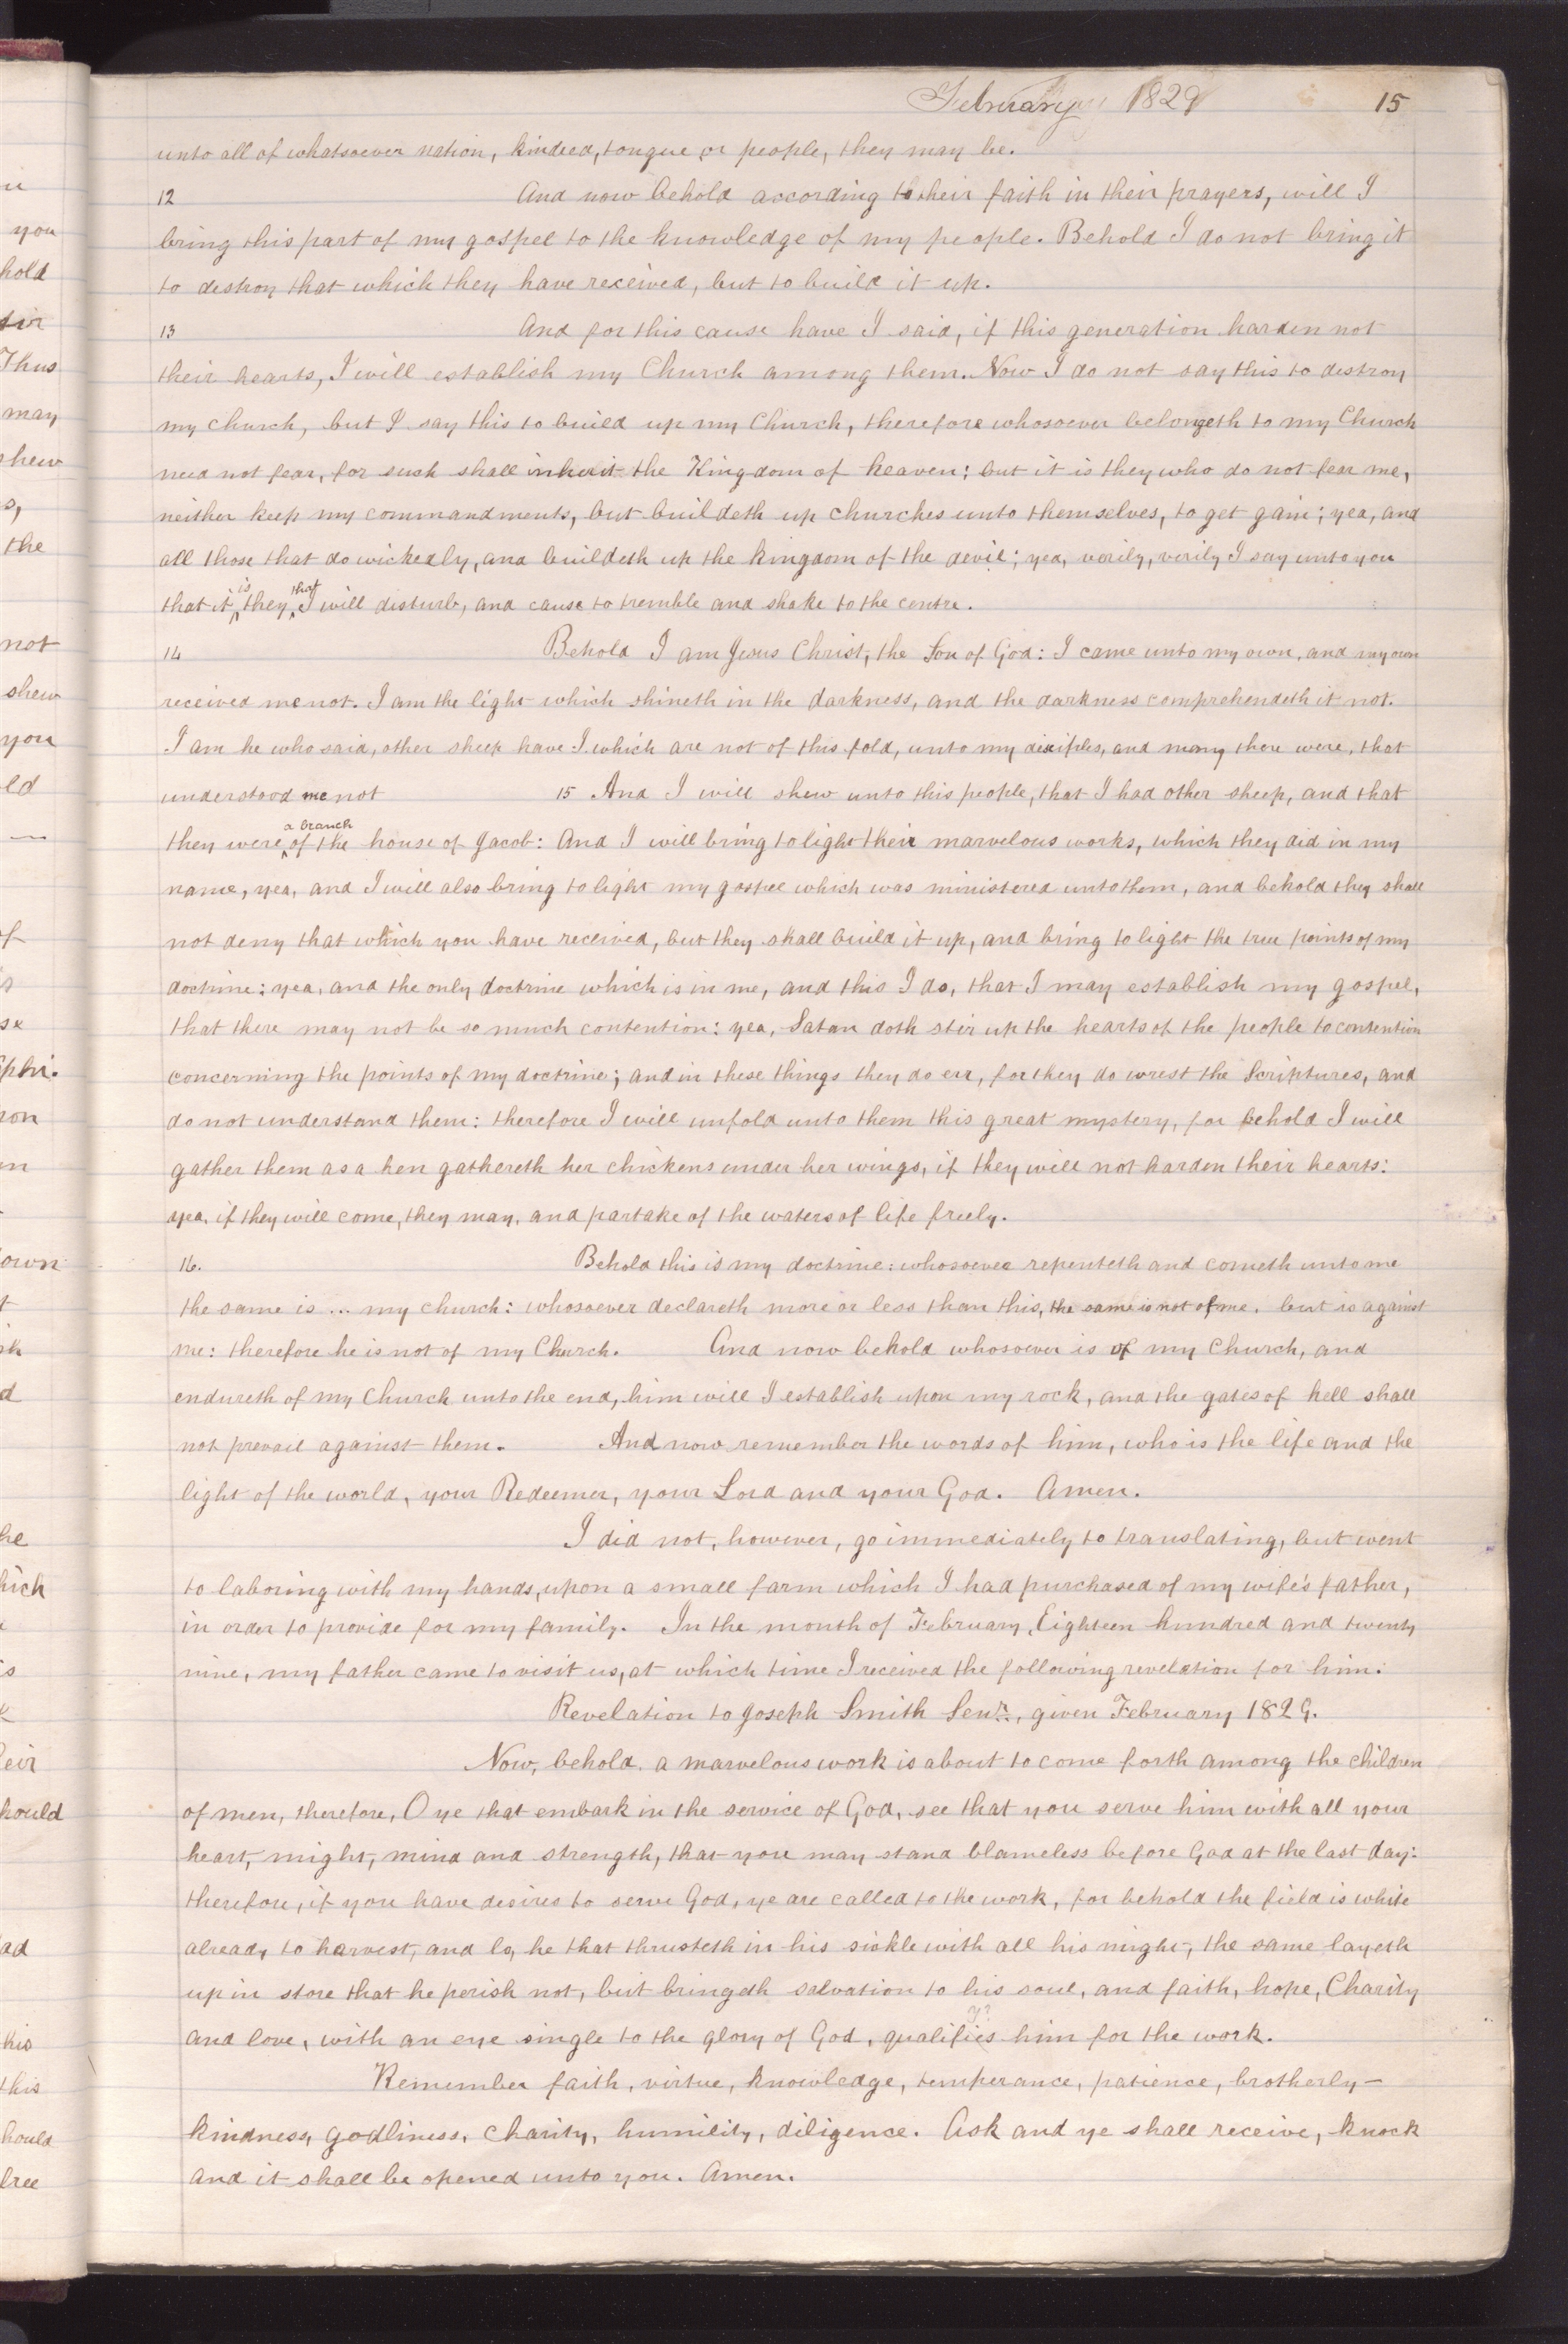 February 1829 15
unto all of whatsoever nation, kindred, tongue or people, they may be.
12 And now behold according to their faith in their prayers, will I
bring this part of my gospel to the knowledge of my people. Behold I do not bring it
to destroy that which they have received, but to build it up.
13 And for this cause have I said, if this generation harden not
their hearts, I will establish my Church among them. Now I do not say this to destroy
my church, but I say this to build up my Church, therefore whosoever belongeth to my Church
need not fear, for such shall inherit the Kingdom of heaven: but it is they who do not fear me,
neither keep my commandments, but buildeth up churches unto themselves, to get gain; yea, and
all those that do wickedly, and buildeth up the kingdom of the devil; yea, verily, verily I say unto you
that it is they that I will disturb, and cause to tremble and shake to the centre.
14 Behold I am Jesus Christ, the Son of God: I came unto my own, and my own
received me not. I am the light which shineth in the darkness, and the darkness comprehendeth it not.
I am he who said, other sheep have I which are not of this fold, unto my disciples, and many there were, that
understood me not 15 And I will shew unto this people, that I had other sheep, and that
they were a branch of the house of Jacob: And I will bring to light their marvelous works, which they did in my
name, yea, and I will also bring to light my gospel which was ministered unto them, and behold they shall
not deny that which you have received, but they shall build it up, and bring to light the true points of my
doctrine: yea, and the only doctrine which is in me, and this I do, that I may establish my gospel,
that there may not be so much contention: yea, Satan doth stir up the hearts of the people to contention
concerning the points of my doctrine; and in these things they do err, for they do wrest the Scriptures, and
do not understand them: therefore I will unfold unto them this great mystery, for behold I will
gather them as a hen gathereth her chickens under her wings, if they will not harden their hearts:
yea, if they will come, they may, and partake of the waters of life freely.
16. Behold this is my doctrine: whosoever repenteth and cometh unto me
the same is ... my church: whosoever declareth more or less than this, the same is not of me, but is against
me: therefore he is not of my Church. And now behold whosoever is of my Church, and
endureth of my Church unto the end, him will I establish upon my rock, and the gates of hell shall
not prevail against them. And now remember the words of him, who is the life and the
light of the world, your Redeemer, your Lord and your God. Amen.
I did not, however, go immediately to translating, but went
to laboring with my hands, upon a small farm which I had purchased of my wife's father,
in order to provide for my family. In the month of February, Eighteen hundred and twenty
nine, my father came to visit us, at which time I received the following revelation for him:
Revelation to Joseph Smith Senr., given February 1829.
Now, behold, a marvelous work is about to come forth among the children
of men, therefore, O ye that embark in the service of God, see that you serve him with all your
heart, might, mind and strength, that you may stand blameless before God at the last day:
therefore, if you have desires to serve God, ye are called to the work, for behold the field is white
already to harvest, and lo, he that thrusteth in his sickle with all his might, the same layeth
up in store that he perish not, but bringeth salvation to his soul, and faith, hope, Charity
and love, with an eye single to the glory of God, qualifies him for the work.
Remember faith, virtue, knowledge, temperance, patience, brotherly-
kindness, godliness, charity, humility, diligence. Ask and ye shall receive, knock
and it shall be opened unto you. Amen.